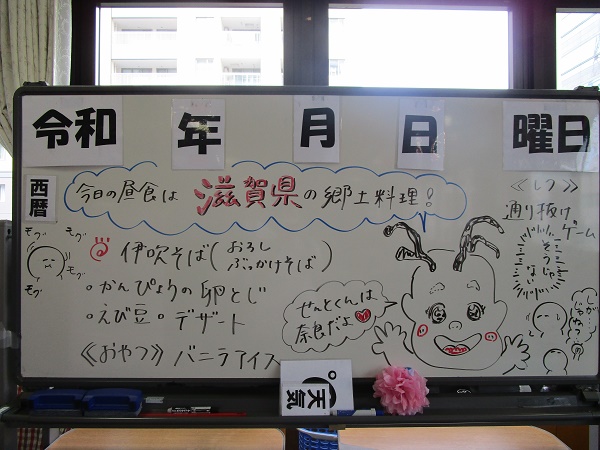 令和 年 月 日 曜日
西暦
今日の昼食は 滋賀県の郷土料理!
伊吹そば(おろしぶっかけそば)
・かんぴょうの卵とじ
・えび豆・デザート
《おやつ》バニラアイス
モグ モグ
モグ モグ
せんとくんは
奈良だよ
≪レク≫
通り抜け
ゲーム
そうじゃ
ない
しが…
じゃねっ!
天気